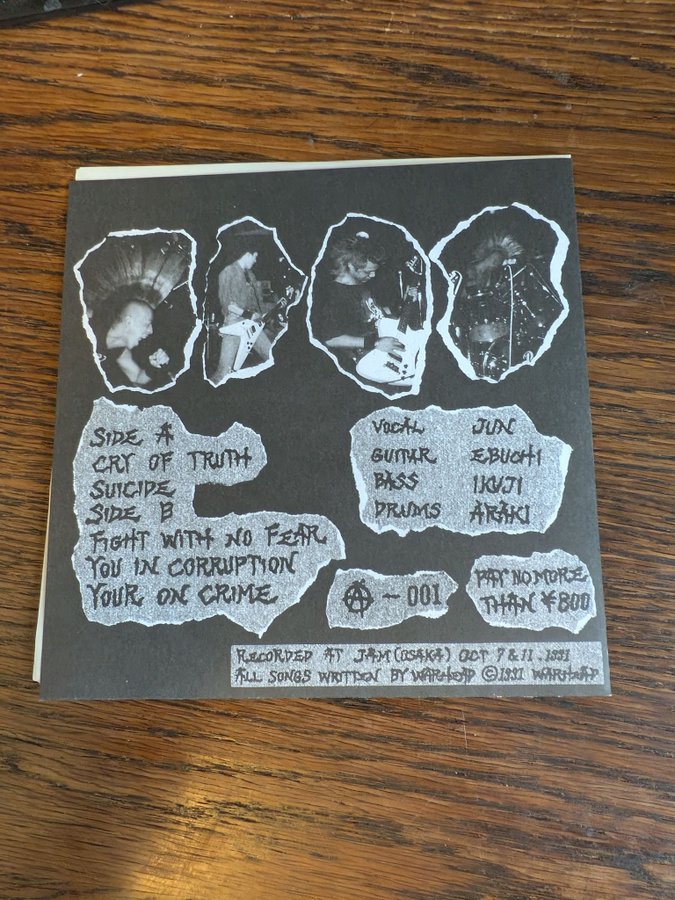 SIDE A
CRY OF TRUTH
SUICIDE
SIDE B
FIGHT WITH NO FEAR
YOU IN CORRUPTION
YOUR ON CRIME
VOCAL JUN
GUITAR EBUCHI
BASS IKUJI
DRUMS ARAKI
Ⓐ-001
PAY NO MORE
THAN ¥800
RECORDED AT JAM (OSAKA) OCT 7 & 11. 1991
ALL SONGS WRITTEN BY WARHEAD ©1991 WARHEAD